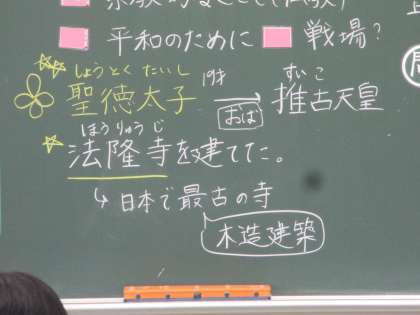 平和のために 戦場?
しょうとく たいし 19才 すいこ
聖徳太子 → おば 推古天皇
ほうりゅうじ
法隆寺を建てた。
↳日本で最古の寺
木造建築